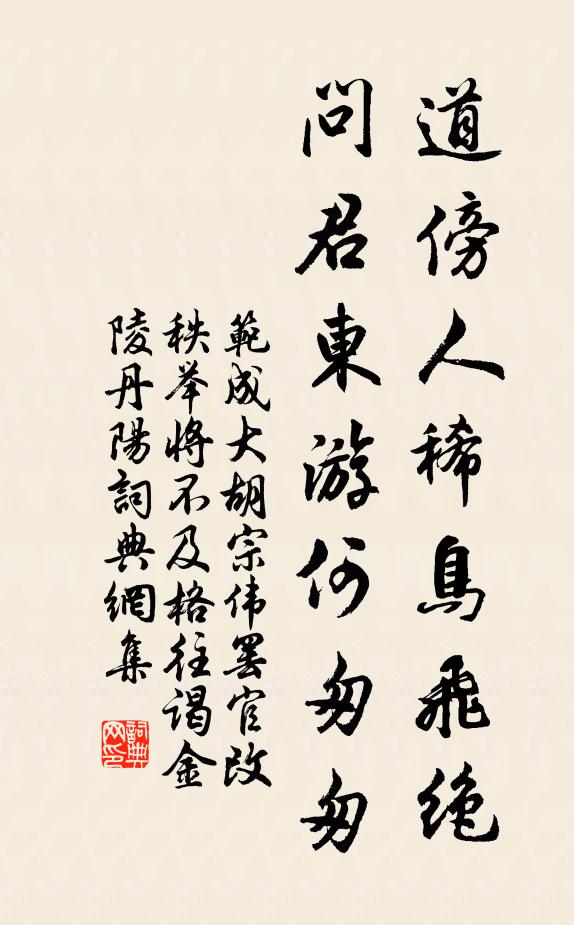 道傍人稀鳥飛絶
問君東游何匆匆
範成大胡宗伟罢官改
秩举将不及格往谒金
陵丹陽詞典網集
詞典網印